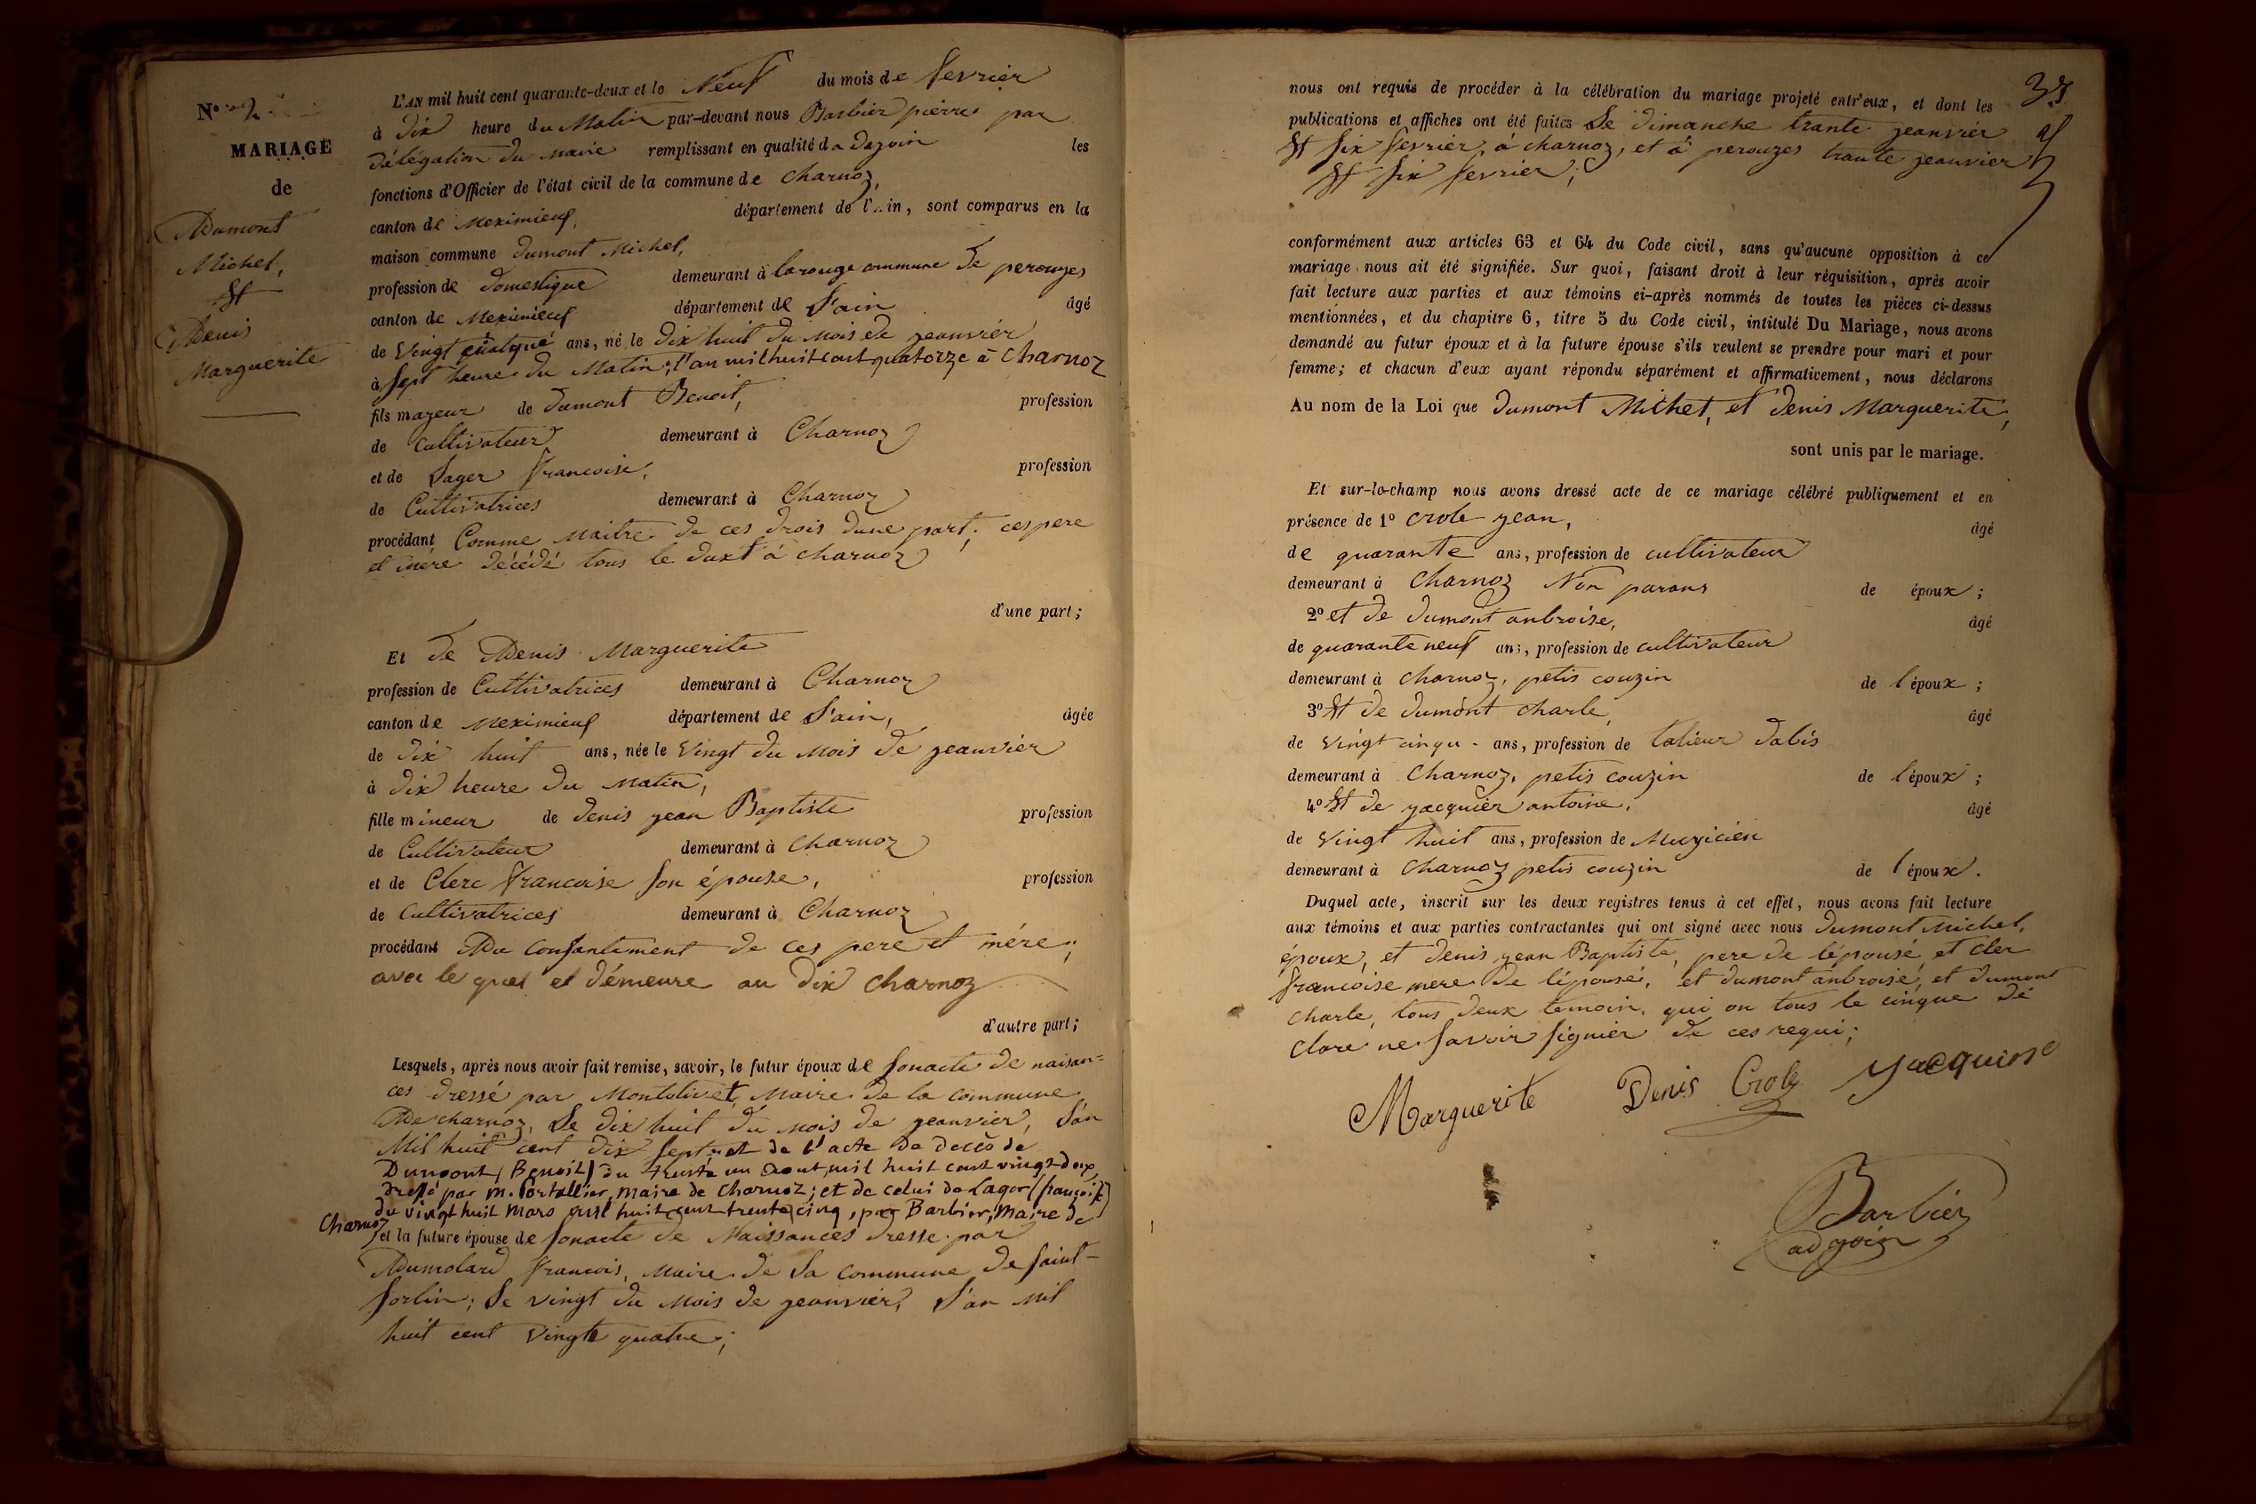 N° 2
MARIAGE
de
Dumont
Michel,
Et
Denis
Marguerite
L'AN mil huit cent quarante-deux et le Neuf du mois de fevrier
à dix heure du Matin par-devant nous Barbier pierre par
délégation du maire remplissant en qualité d adegoin les
fonctions d'Officier de l'état civil de la commune de Charnoz,
canton de Meximieuf, département de l'Ain, sont comparus en la
maison commune dumont Michel,
profession de domestique demeurant à larouge commune de perouges
canton de Meximieuf département de L'ain âgé
de Vingt quatque ans, né le dix huit du Mois de jeanvier
à sept heure du Matin, l'an mil huit cent quatorze à Charnoz
fils mageur de dumont Benoit, profession
de Cultivateur demeurant à Charnoz
et de Lager francoise, profession
de Cultivatrices demeurant à Charnoz
procédant Comme Maitre de ces drois dune part, ces pere
et mere décédé tous le duxt à charnoz
d'une part;
Et de Denis Marguerite
profession de Cultivatrices demeurant à Charnoz
canton de Meximieuf département de L'ain, âgée
de dix huit ans, née le Vingt du Mois de jeanvier
à dix heure du Matin,
fille mineur de denis jean Baptiste profession
de Cultivateur demeurant à Charnoz
et de Clerc francoise son épouse, profession
de Cultivatrices demeurant à Charnoz
procédant Du Consantement de ces pere et mére;
avec le quel et démeure au dix Charnoz
d'autre part;
Lesquels, après nous avoir fait remise, savoir, le futur époux de sonacte de naisan=
ces dressé par Montolivet, Maire de la commune
De charnoz, Le dix huit du mois de jeanvier, L'an
Mil huit cent dix sept; et de l'acte de decès de
Dumont (Benoit) du trente un aout mil huit cent vingt-deux,
dressé par M. Portallier, maire de Charnoz; et de celui de Lager (françoise)
du vingt huit Mars mil huit cent trente cinq, par Barbier, Maire de
Charnoz
et la future épouse de sonacte de Naissances dresse par
Dumolard francois, Maire de La commune de saint-
sorlin; Le vingt du Mois de jeanvier, L'an Mil
huit cent Vingte quatre;
nous ont requis de procéder à la célébration du mariage projeté entr'eux, et dont les
publications et affiches ont été faites Le dimanche trante jeanvier
Et six fevrier, à charnoz, et à perouges trante jeanvier
Et six fevrier;
conformément aux articles 63 et 64 du Code civil, sans qu'aucune opposition à ce
mariage nous ait été signifiée. Sur quoi, faisant droit à leur réquisition, après avoir
fait lecture aux parties et aux témoins ci-après nommés de toutes les pièces ci-dessus
mentionnées, et du chapitre 6, titre 5 du Code civil, intitulé Du Mariage, nous avons
demandé au futur époux et à la future épouse s'ils veulent se prendre pour mari et pour
femme; et chacun d'eux ayant répondu séparément et affirmativement, nous déclarons
Au nom de la Loi que dumont Michel, et denis Marguerite,
sont unis par le mariage.
Et sur-le-champ nous avons dressé acte de ce mariage célébré publiquement et en
présence de 1° Crole jean, âgé
de quarante ans, profession de cultivateur
demeurant à Charnoz Non parans de époux;
2° et de dumont anbroise, âgé
de quarante neuf ans, profession de cultivateur
demeurant à Charnoz, petis couzin de l'époux;
3° Et de dumont charle, âgé
de vingt cinqu ans, profession de talieur dabis
demeurant à Charnoz, petis couzin de l'époux;
4° Et de jacquier antoine, âgé
de Vingt huit ans, profession de Muzicien
demeurant à Charnoz petis couzin de l'époux.
Duquel acte, inscrit sur les deux registres tenus à cet effet, nous avons fait lecture
aux témoins et aux parties contractantes qui ont signé avec nous dumont Michel,
époux, et denis jean Baptiste, pere de lépousé, et Cler
francoise mere de lépousé, et dumont anbroisé, et dumont
charle, tous deux temoin, qui on tous le cinque dé
clare ne savoir signier de ces requi;
Marguerite Denis Crole Jacquier
Barbier
adgoin